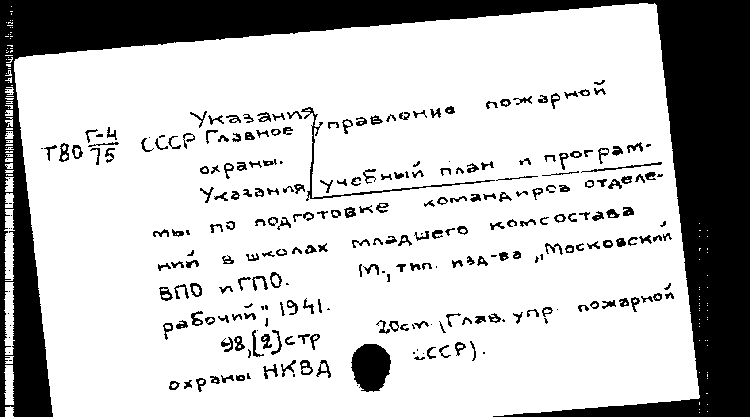 Указания,
Т80 Г-4/75 СССР Главное управление пожарной
охраны.
Указания, учебный план и програм-
мы по подготовке командиров отделе-
ний в школах младшего комсостава
ВПО и ГПО. М., тип. изд-ва „Московский
рабочий", 1941.
98,[2]стр 20см (Глав. упр. пожарной
охраны НКВД СССР).